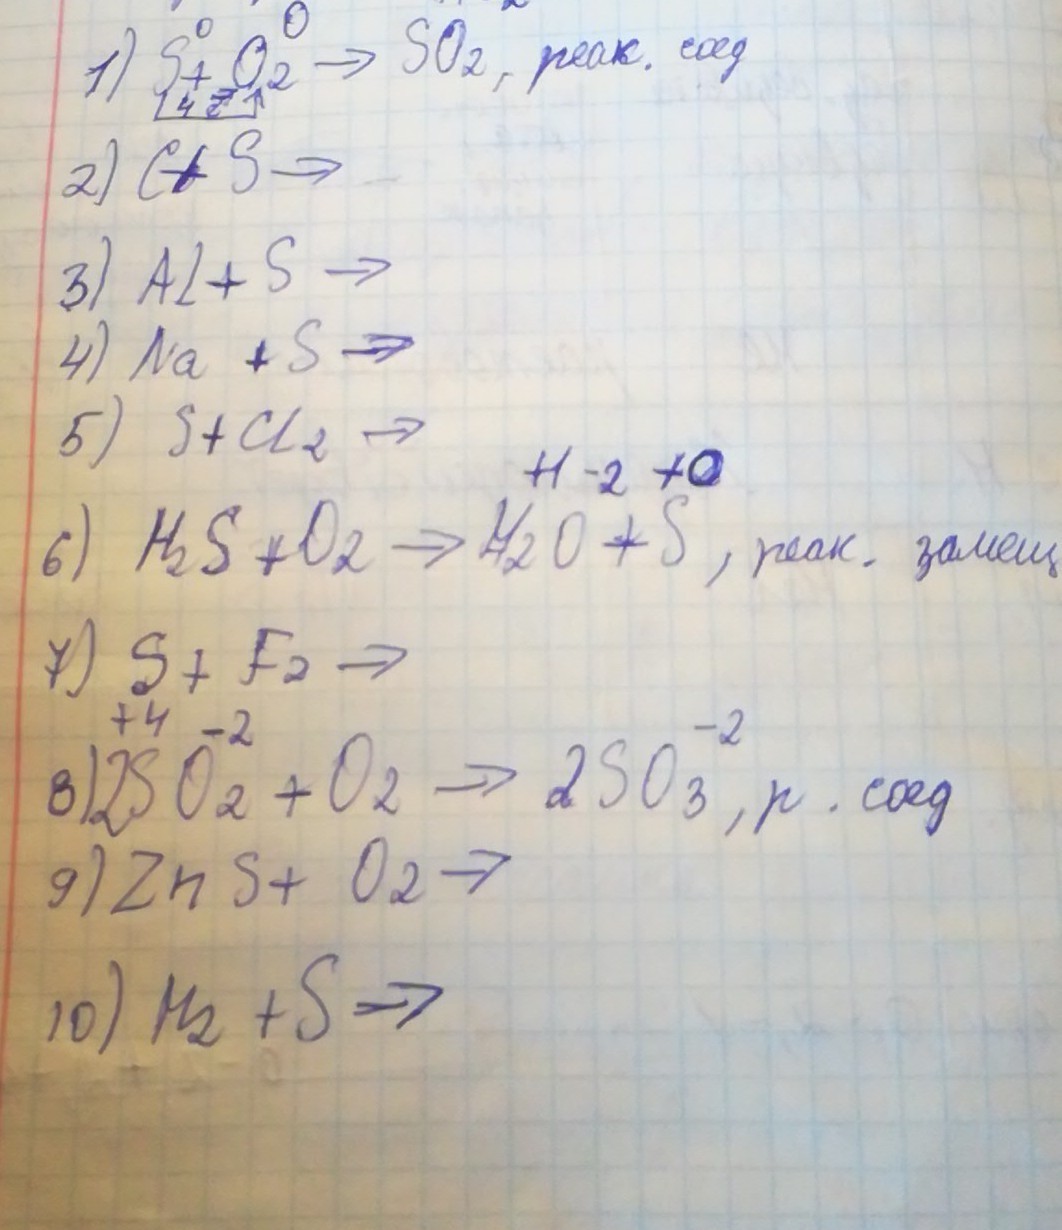 0 0
1) S + O2 → SO2, реак. соед
4e
2) C + S →
3) Al + S →
4) Na + S →
5) S + Cl2 →
+1 -2 +0
6) H2S + O2 → H2O + S, реак. замещ
7) S + F2 →
+4 -2 -2
8) 2SO2 + O2 → 2SO3, р. соед
9) ZnS + O2 →
10) H2 + S →